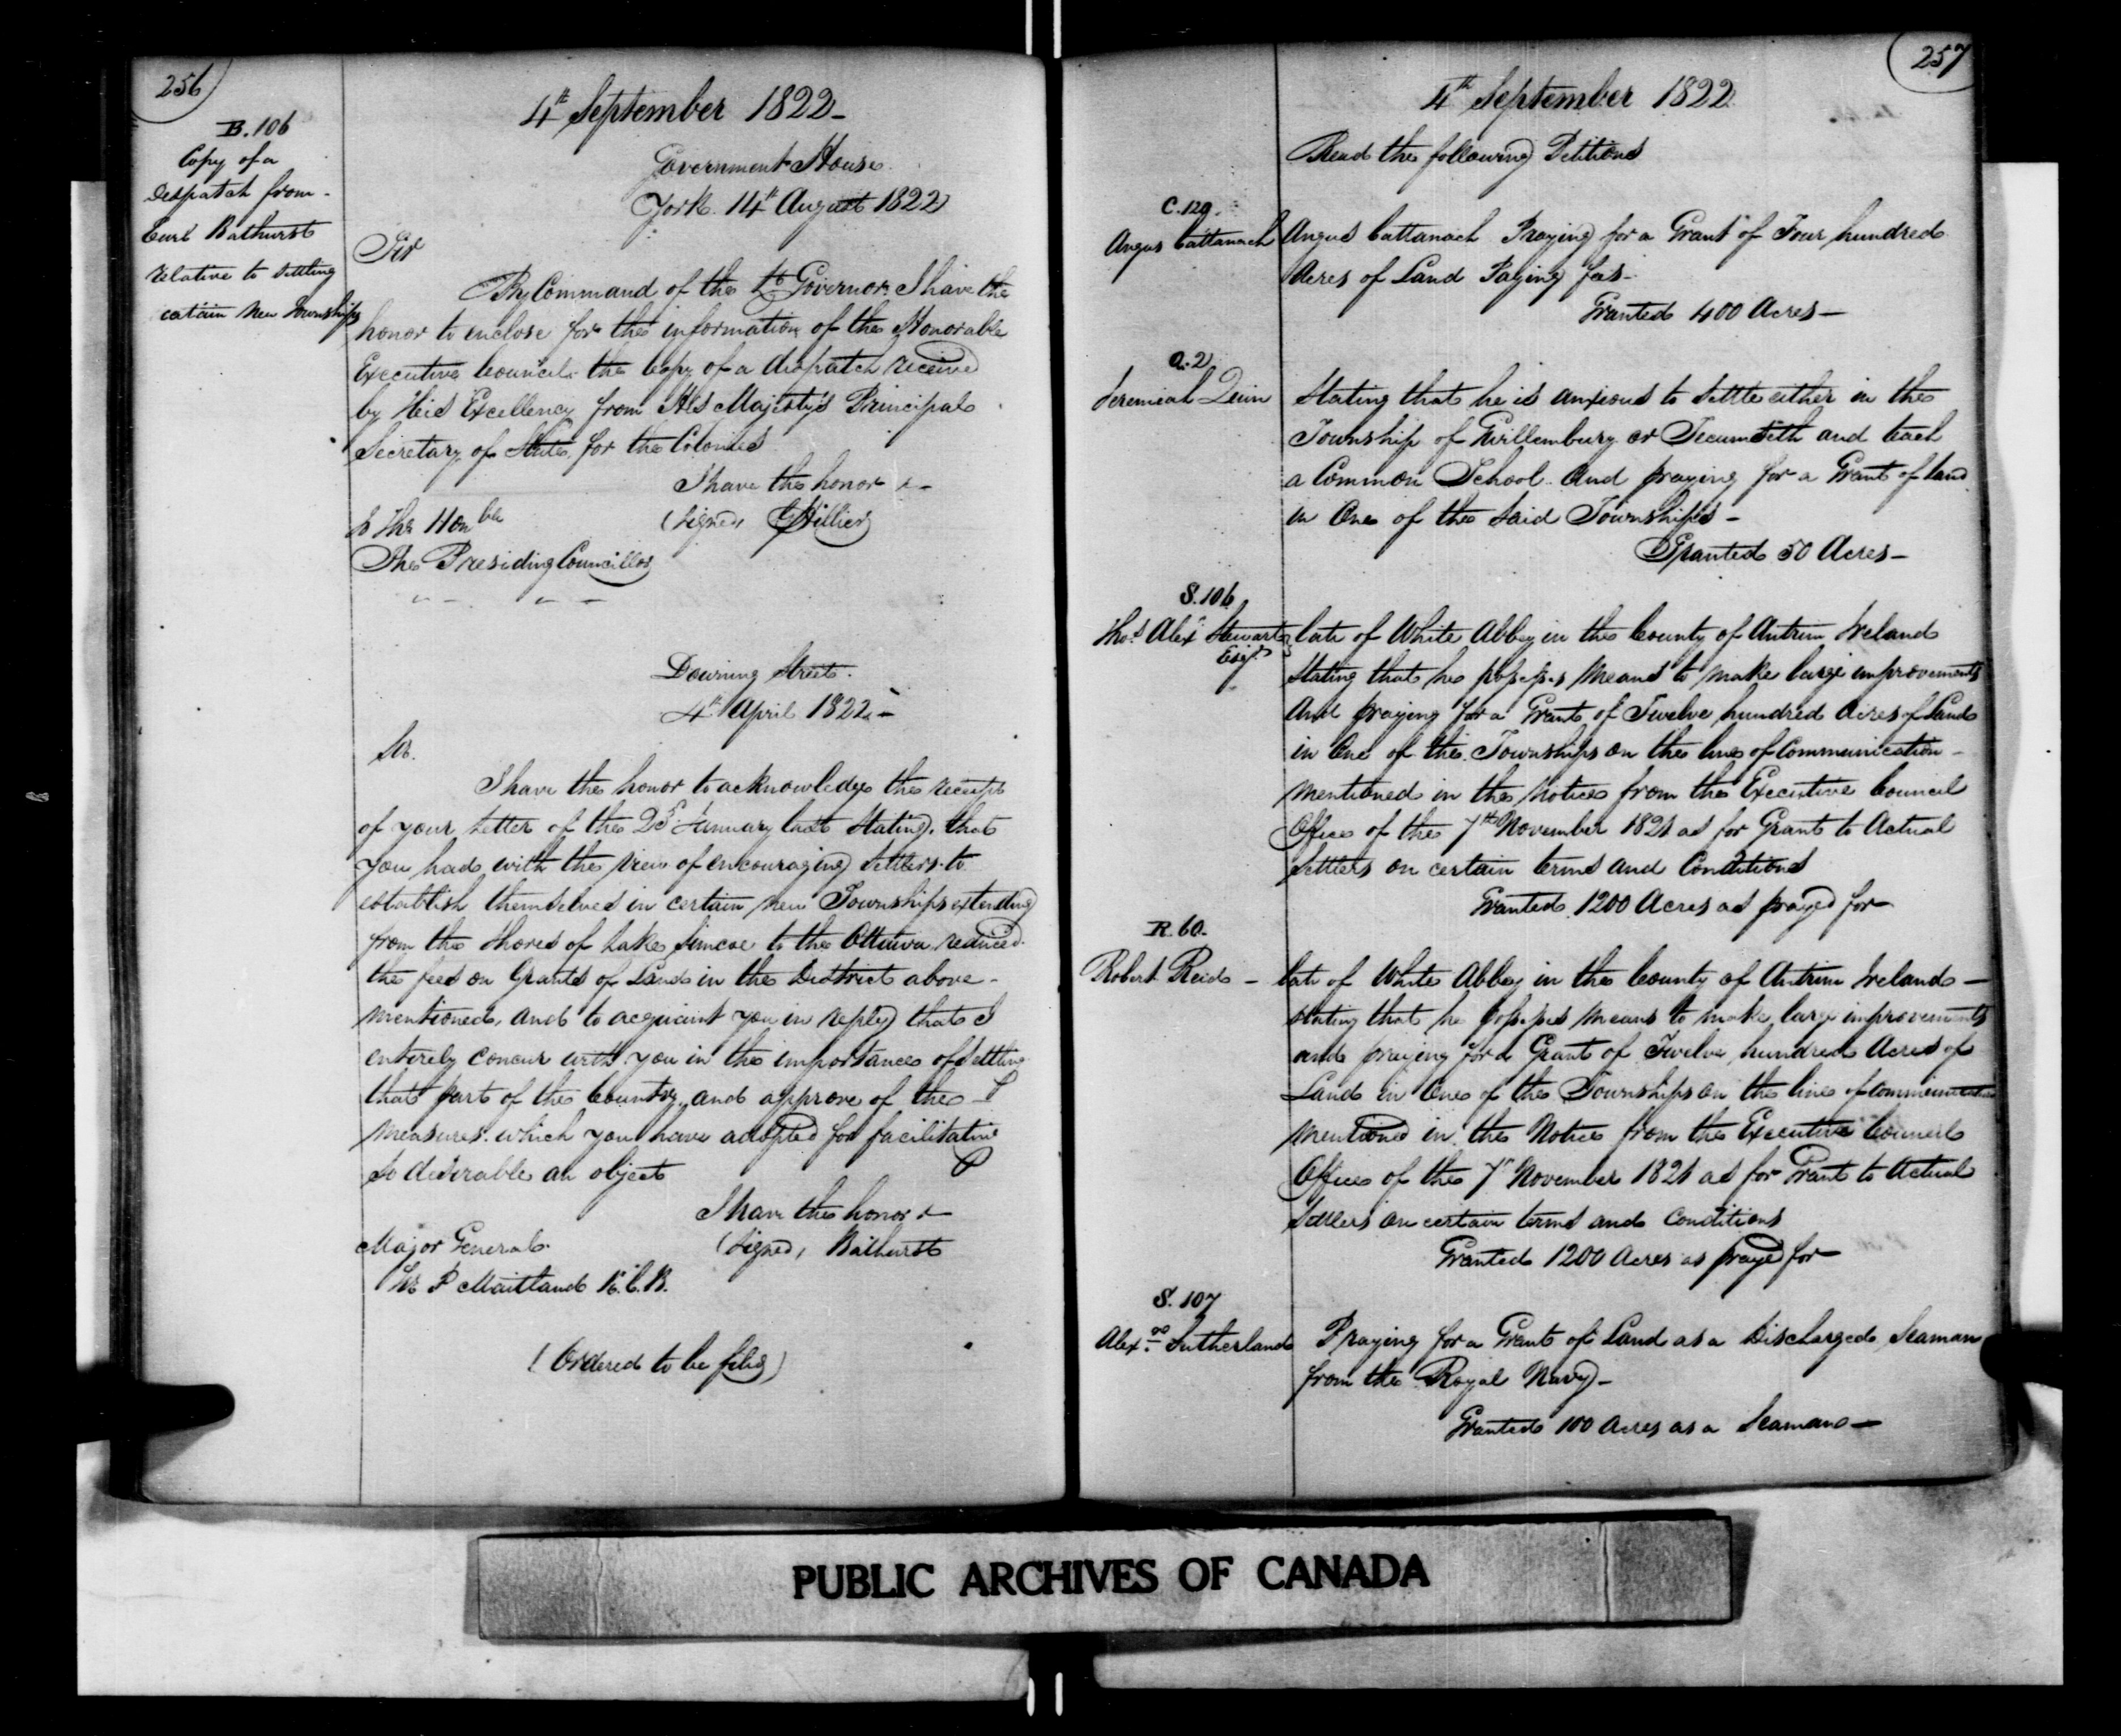 256
B. 106
Copy of a
Despatch from -
Earl Bathurst
relative to settling
certain New Townships
4th September 1822 -
Government House
York 14th August 1822
Sir
By Command of the Lt Governor I have the
honor to enclose for the information of the Honorable
Executive Council the Copy of a dispatch received
by His Excellency from His Majesty's Principal
Secretary of State for the Colonies
I have the honor &-
(Signed) G Hillier
To The Honble
The Presiding Councillor
Downing Street.
4th April 1822 -
Sir.
I have the honor to acknowledge the receipt
of your letter of the January last Stating, that
you had, with the view of encouraging Settlers to
establish themselves in certain new Townships extending
from the Shores of Lake Simcoe to the Ottawa reduced
the fees on Grants of Land in the District above -
mentioned, and to acquaint you in reply that I
entirely concur with you in the importance of Settling
that part of the Country, and approve of the
measures which you have adopted for facilitating
so desirable an object
I have the honor &
(Signed) Bathurst
Major General
Sir P Maitland K.C.B.
(Ordered to be filed)
257
4th September 1822
Read the following Petitions
C. 129.
Angus Cattanach
Angus Cattanach Praying for a Grant of Four hundred
Acres of Land Paying fees -
Granted 400 Acres -
Q. 2
Jeremiah Quin
Stating that he is anxious to Settle either in the
Township of Gwillembury or Tecumseth and teach
a Common School and praying for a Grant of land
in One of the said Townships -
Granted 50 Acres -
S. 106
Thos Alexr Stewart
Esqr
late of White Abbey in the County of Antrim Ireland
Stating that he possesses Means to make large improvements
And praying for a Grant of Twelve hundred Acres of Land
in One of the Townships on the line of Communication -
mentioned in the Notice from the Executive Council
Office of the 7th November 1821 as for Grant to Actual
Settlers on certain terms and Conditions
Granted 1200 Acres as prayed for
R. 60.
Robert Reid -
late of White Abbey in the County of Antrim Ireland -
stating that he possesses means to make large improvements
and praying for a Grant of Twelve hundred Acres of
Land in One of the Townships on the line of communication
mentioned in the Notice from the Executive Council
Office of the 7th November 1821 as for Grant to Actual
Settlers on certain terms and Conditions
Granted 1200 Acres as prayed for
S. 107
Alexr Sutherland
Praying for a Grant of Land as a Discharged Seaman
from the Royal Navy -
Granted 100 Acres as a Seaman -
PUBLIC ARCHIVES OF CANADA